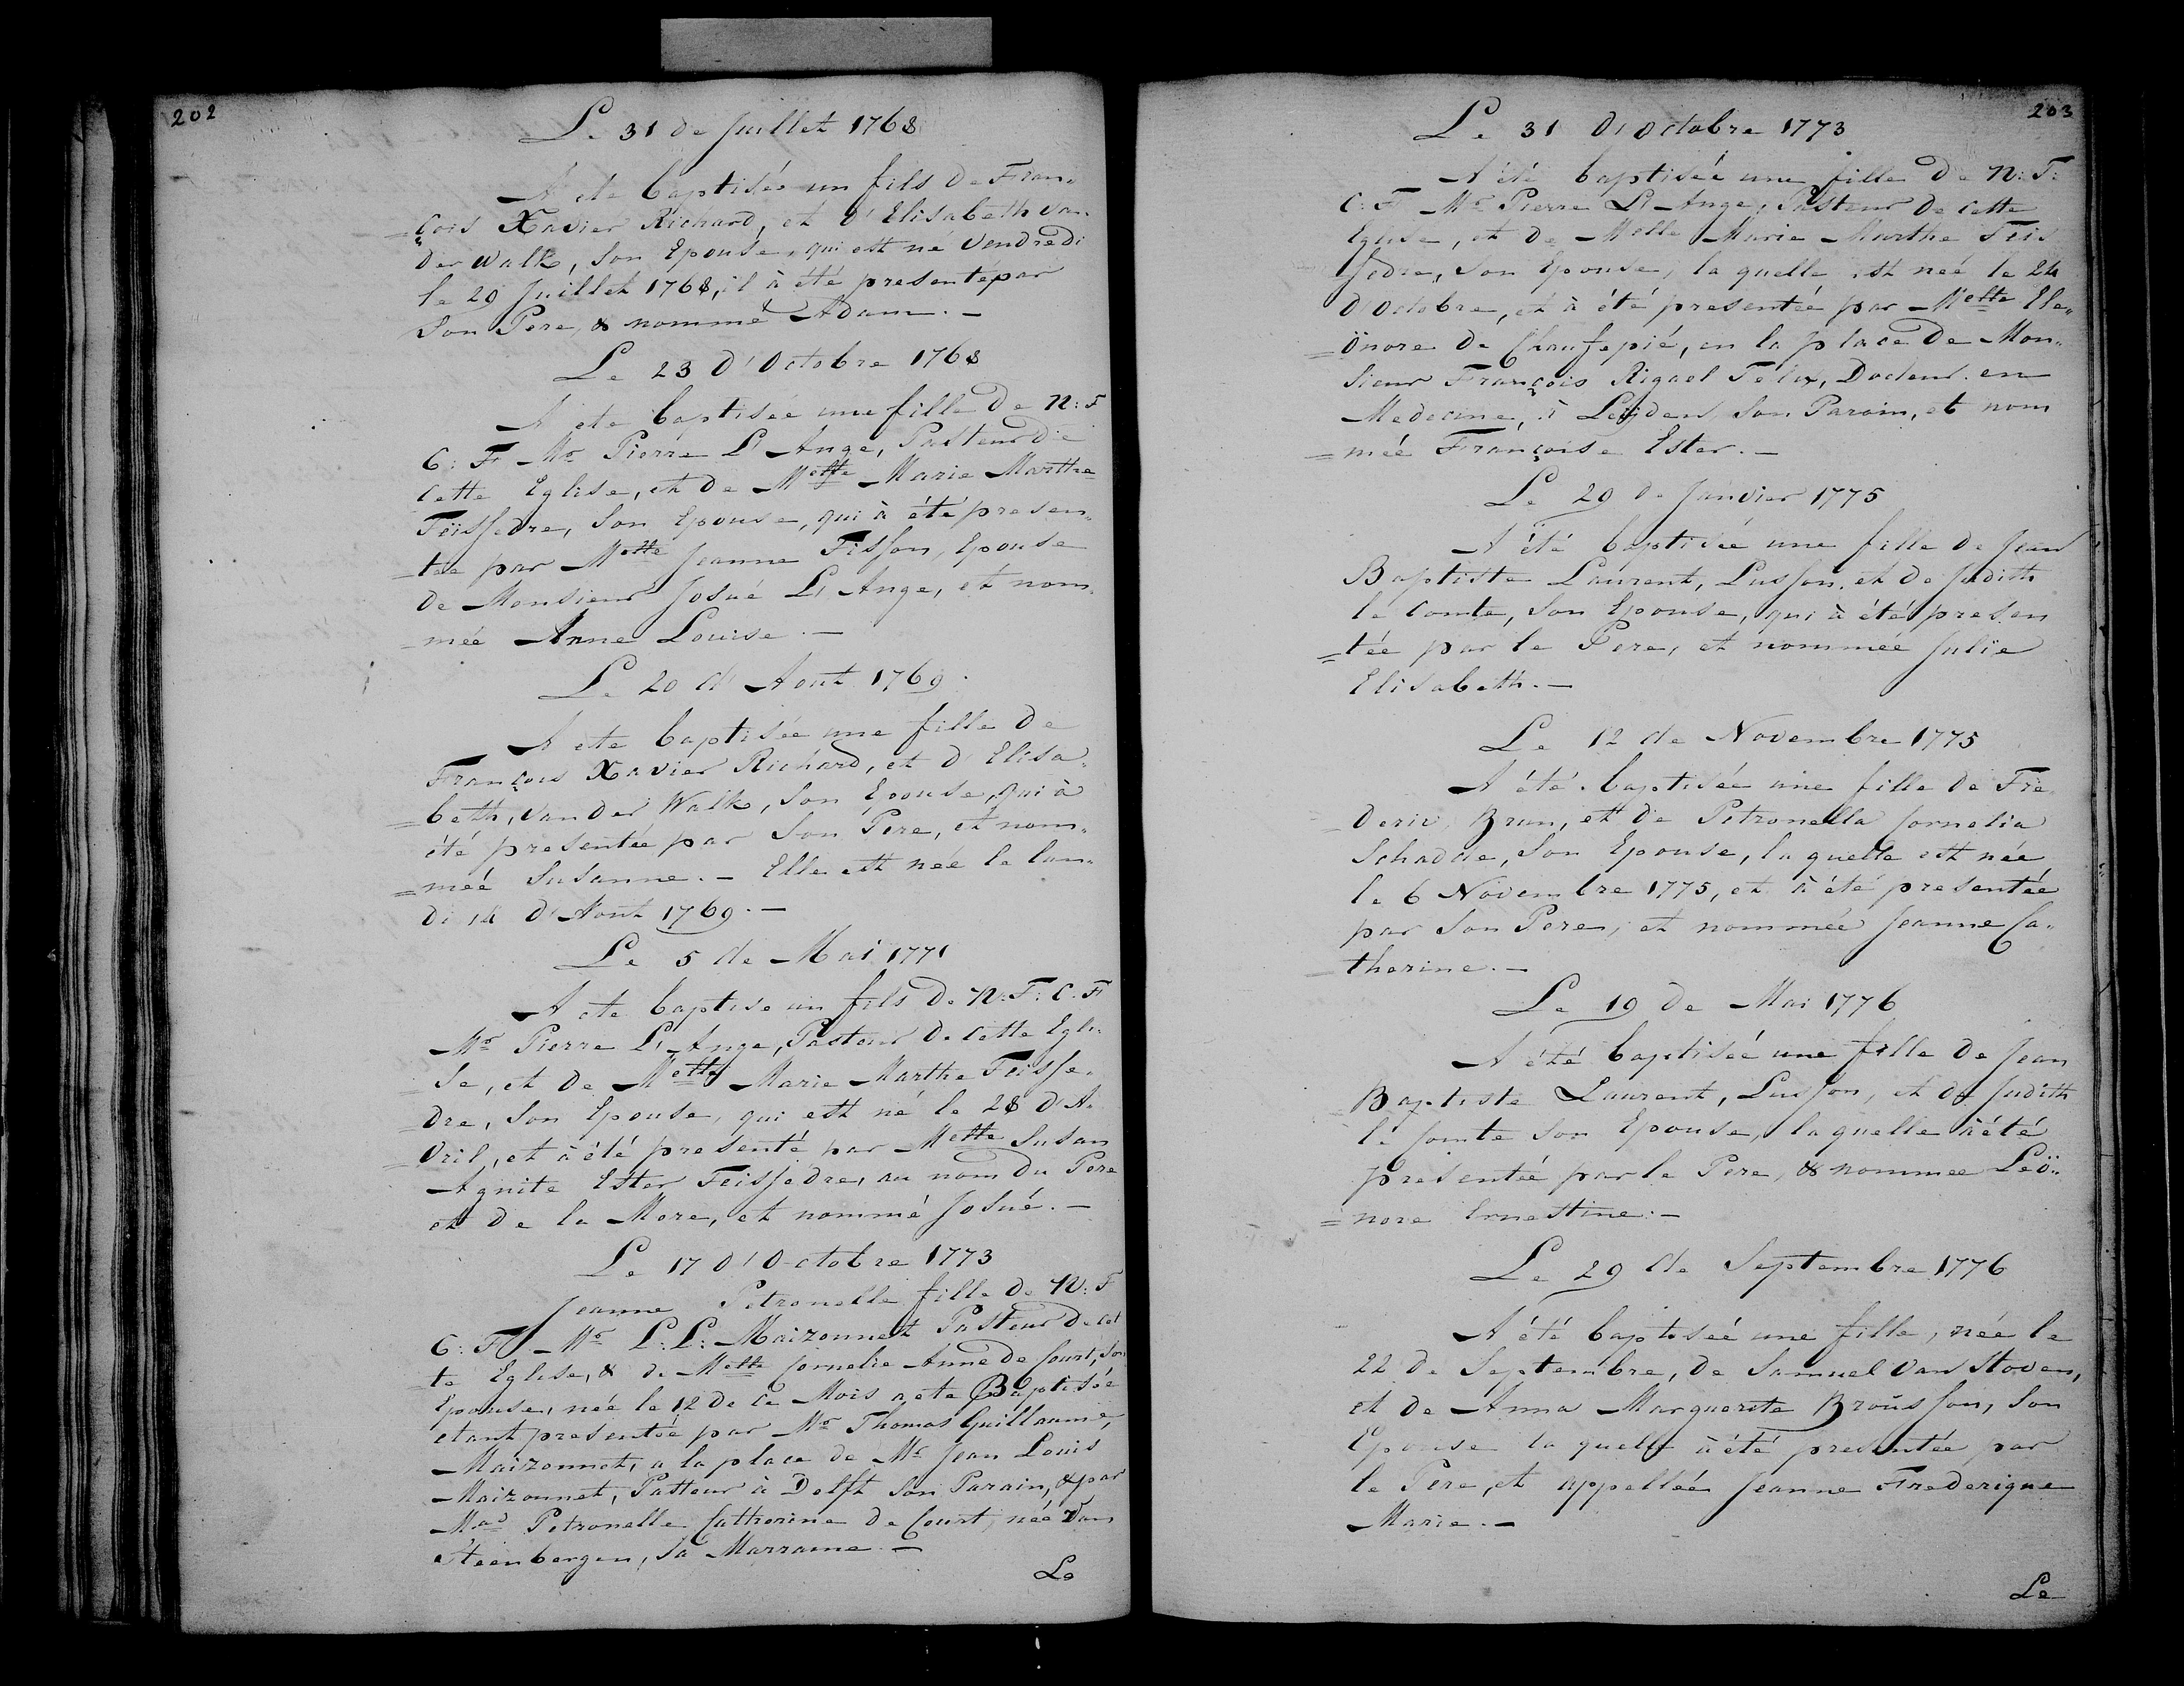 202
Le 31 de Juillet 1768
A ete baptisée un fils de Fran„
=çois Xavier Richard, et d'Elisabeth van
der Walk, son Epouse, qui est né Vendredi
le 29 Juillet 1768, il à été presenté par
son Pere, & nommé Adam. —
Le 23 d'Octobre 1768
A ete baptisée une fille de N: F
C: F. Mr. Pierre L'Ange, Pasteur de
cette Eglise, et de Melle Marie Marthe
Teissedre, son Epouse, qui à été presen„
=tée par Melle Jeanne Fisson, Epouse
de Monsieur Josué L'Ange, et nom„
=meé Anne Louise. —
Le 20 d'Aout 1769.
A ete baptisée une fille de
François Xavier Richard, et d'Elisa„
=beth, van der Walk, son Epouse, qui à
été presentée par son Pere, et nom„
=meé Susanne. — Elle est neé le lun„
di 14 d'Aout 1769. —
Le 5 de Mai 1771
A ete baptise un fils de N: F: C: F
Mr. Pierre L'Ange, Pasteur de cette Egli„
=se, et de Melle Marie Marthe Teisse„
=dre, son Epouse, qui est né le 28 d'A„
=vril, et à été presenté par Melle Susan
Agnite Ester Teissedre, au nom du Pere
et de la Mere, et nommé Josué. —
Le 17 d'Octobre 1773
Jeanne Petronelle fille de N: F
C: F. Mr. L: L: Maizonnet Pasteur de cet
=te Eglise, & de Melle Cornelie Anne de Court, son
Epouse, née le 12 de ce Mois a ete Baptisée
etant presentée par Mr. Thomas Guillaume,
Maizonnet, a la place de Mr. Jean Louis
Maizonnet, Pasteur à Delft son Parain, & par
Mad Petronelle Catherine de Court, neé van
Steenbergen, sa Marraine —
Le
203
Le 31 d'Octobre 1773
A été baptiseé une fille de N: F:
C: F. Mr. Pierre L'Ange, Pasteur de cette
Eglise, et de Melle Marie Marthe Teis
sedre, son Epouse, la quelle est neé le 24
d'Octobre, et à été presentée par Melle Ele„
=önore de Chaufepié, en la place de Mon„
sieur François Rigael Felix, Docteur en
Medecine, à Leyden son Parain, et nom
=mée Françoise Ester. —
Le 29 de Janvier 1775
A été baptisée une fille de Jean
Baptiste Laurent, Lusson, et de Judith
le Comte, son Epouse, qui à été presen
=tée par le Pere, et nommeé Julie
Elisabeth. —
Le 12 de Novembre 1775
A été baptisée une fille de Fre„
=deric Brun, et de Petronella Cornelia
Schadde, son Epouse, la quelle est née
le 6 Novembre 1775, et à été presentée
par son Pere, et nommée Jeanne Ca„
=therine. —
Le 19 de Mai 1776
A été baptiseé une fille de Jean
Baptiste Laurent, Lusson, et de Judith
le Comte son Epouse, la quelle à été
presentée par le Pere, & nommee Leö„
=nore Ernestine. —
Le 29 de Septembre 1776
A été baptiseé une fille, née le
22 de Septembre, de Samuel van Stoven,
et de Anna Marguerite Broüsson, son
Epouse la quelle à été presentée par
le Pere, et appelleé Jeanne Frederique
Marie. —
Le